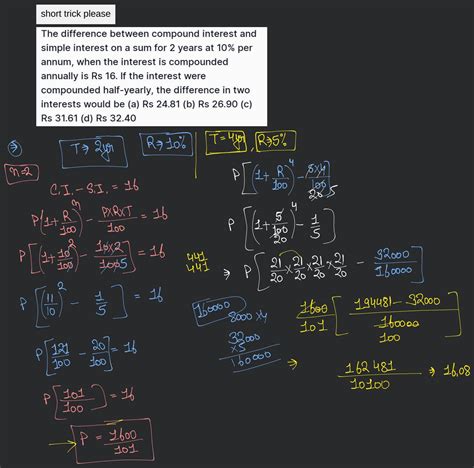 short trick please
The difference between compound interest and
simple interest on a sum for 2 years at 10% per
annum, when the interest is compounded
annually is Rs 16. If the interest were
compounded half-yearly, the difference in two
interests would be (a) Rs 24.81 (b) Rs 26.90 (c)
Rs 31.61 (d) Rs 32.40
n=2
T → 2yr
R → 10%
C.I. - S.I. = 16
P(1+R/100)^n - PxRxT/100 = 16
P[(1+10/100)^2 - 10x2/100 5] = 16
P[(11/10)^2 - 1/5] = 16
P[121/100 - 20/100] = 16
P[101/100] = 16
→ P = 1600/101
T=4yr, R→5%
P[(1+R/100)^4 - 5x4/100 20 5]
P[(1+5/100 20)^4 - 1/5]
441
441
⇒ P[21/20 x 21/20 x 21/20 x 21/20 - 32000/160000]
160000
8000x4
32000
x5
160000
1600/101 [194481-32000/160000 100]
⇒ 162481/10100 ⇒ 16.08